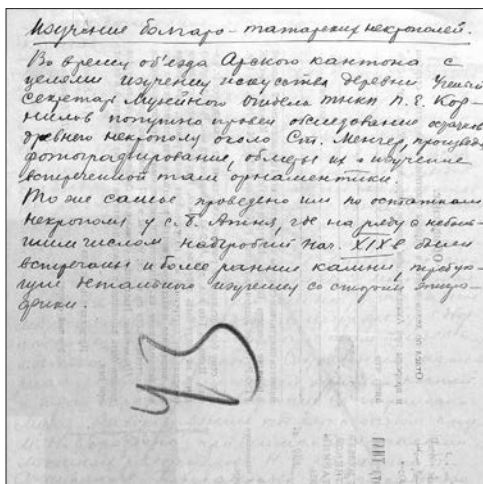 Изучение болгаро-татарских некрополей.
Во время об'езда Арского кантона с
целями изучения искусства деревни Ученый
секретарь Музейного отдела ТНКП П. Е. Кор-
нилов попутно провел обследование остатков
древнего некрополя около Ст. Менгер, произведя
фотографирование, обмеры их и изучение
встреченной там орнаментики.
То же самое проведено им по остаткам
некрополя у с. Б. Атня, где на ряду с неболь-
шим числом надгробий нач. XIX в были
встречены и более ранние камни, требую-
щие детального изучения со стороны эпигра-
фики.
43